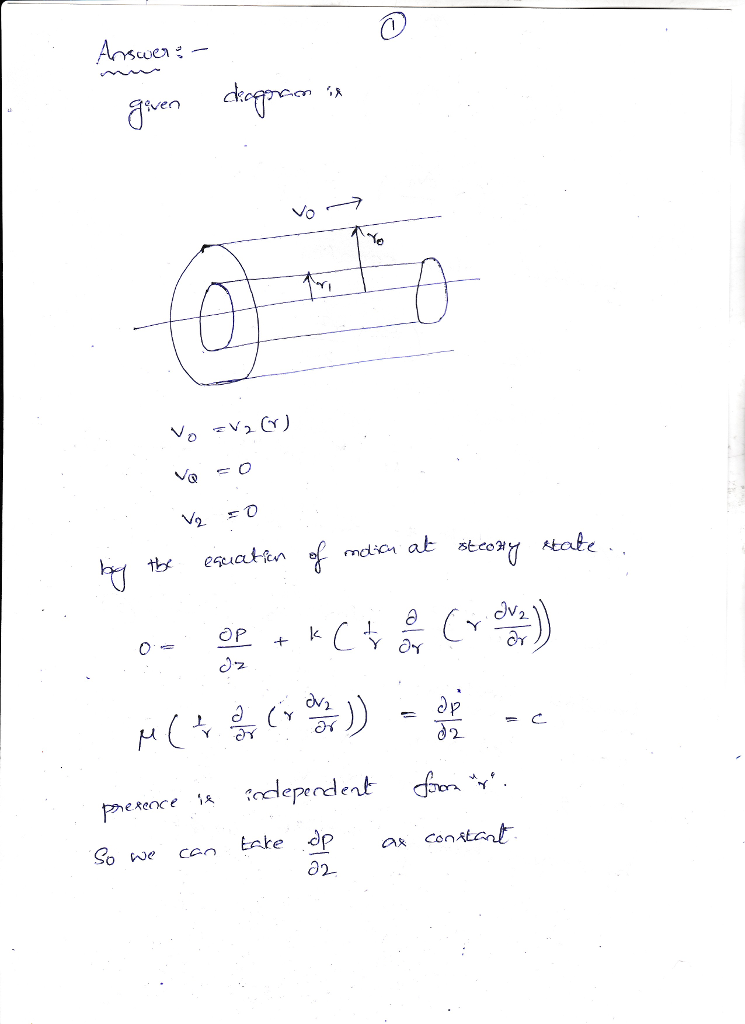 ①
Answer : —
given diagram is
v₀ →
r₀
r₁
v₀ = v₂ (r)
v_Q = 0
v₂ = 0
by the equation of motion at steady state ..
0 = ∂P/∂z + k ( 1/r ∂/∂r ( r ∂v₂/∂r ))
μ ( 1/r ∂/∂r ( r ∂v₂/∂r )) = ∂p/∂z = c
presence is independent from "r".
So we can take ∂p/∂z as constant.